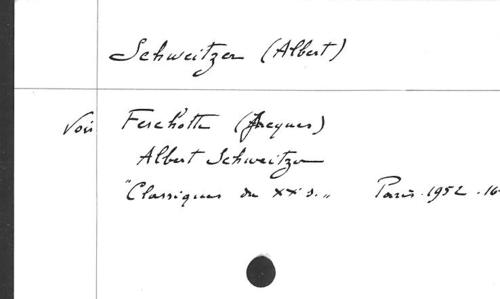 Schweitzer (Albert)
Voir Ferschotte (Jacques)
Albert Schweitzer
"Classiques du XXe s.„ Paris. 1952. 16